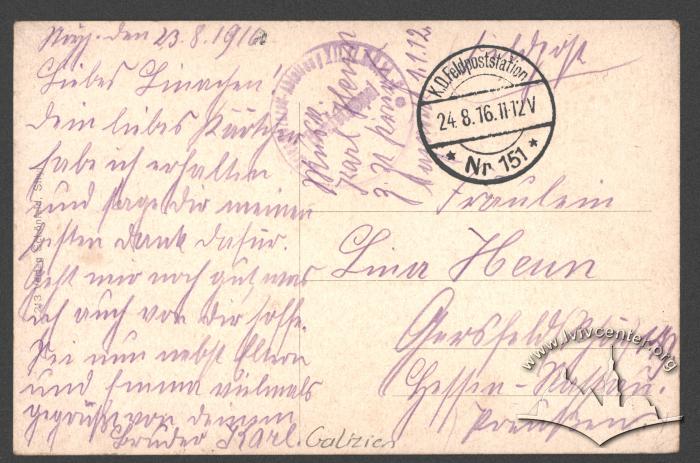 den 23.8.1916
Liebes Linachen!
Dein liebes Kärtchen
habe ich erhalten
und sage Dir meinen
besten Dank dafür.
Geht mir noch gut, was
ich auch von Dir hoffe.
Sei nun nebst Eltern
und Emma vielmals
gegrüßt von deinem
Bruder Karl.
Galizien
Karl Henn
Feldpost
K.D.Feldpoststation
24.8.16.11-12V
* Nr 151 *
Fräulein
Lina Henn
Gersfeld
Hessen-Nassau.
Preußen
www.lvivcenter.org